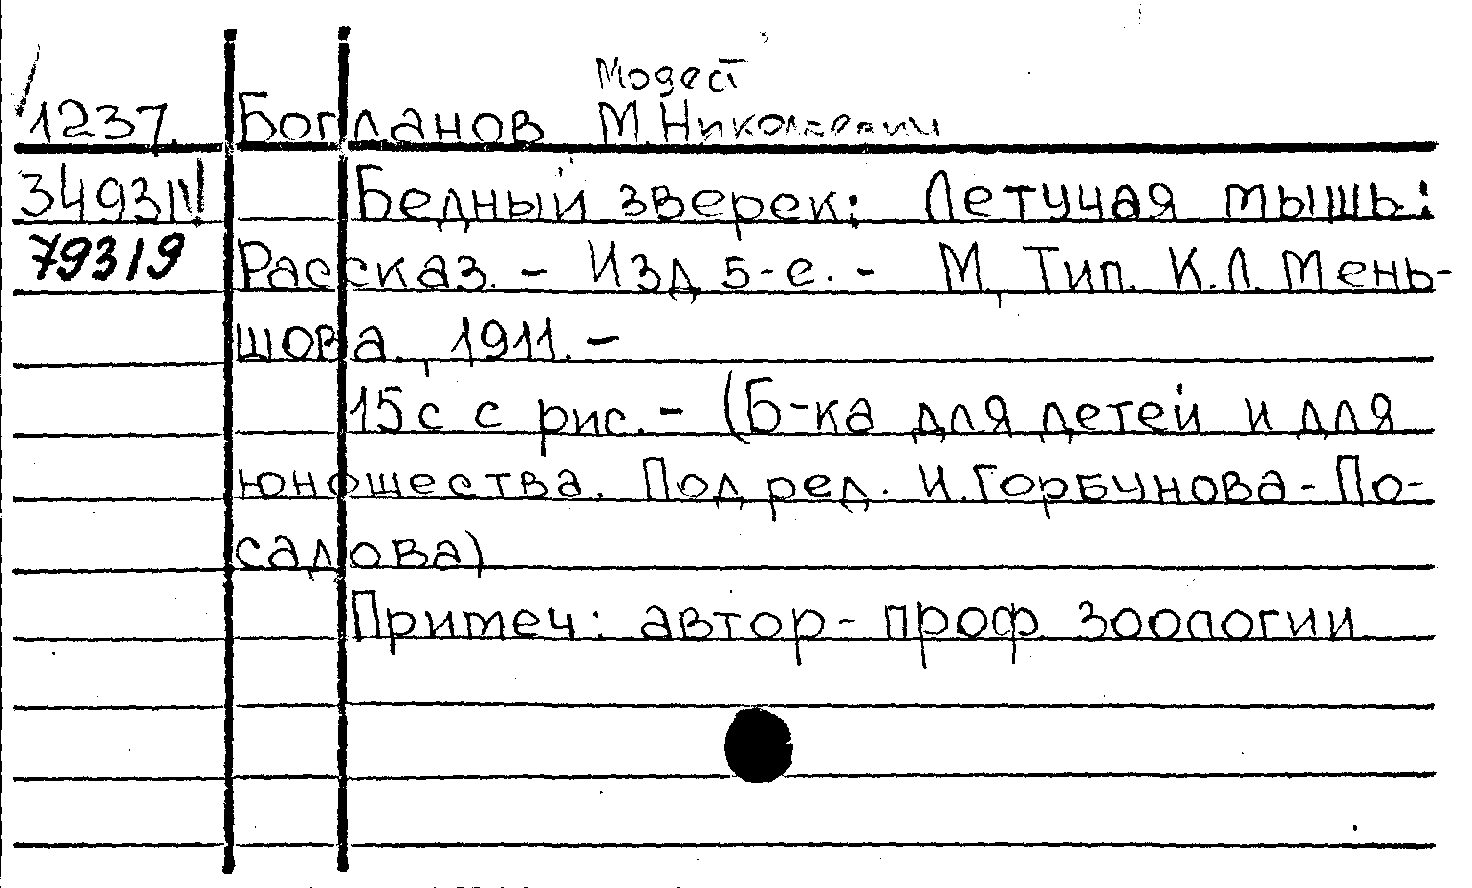 Модест
1237. Богданов М. Николаевич
3493 Бедный зверек; Летучая мышь:
79319 Рассказ. - Изд 5-е. - М, Тип. К.Л. Мень-
шова., 1911. -
15с с рис. - (Б-ка для детей и для
юношества. Под ред. И. Горбунова-По-
садова)
Примеч: автор - проф. зоологии